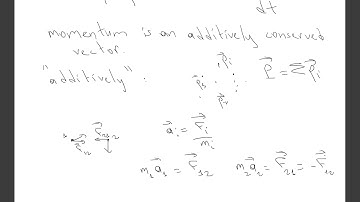 dt
momentum is an additively conserved
vector.
"additively".
p⃗₁
p⃗₃
p⃗₂
P⃗ = Σp⃗ᵢ
a⃗ᵢ = F⃗ᵢ/mᵢ
F⃗₁₂
m₁a⃗₁ = F⃗₁₂ m₂a⃗₂ = F⃗₂₁ = -F⃗₁₂